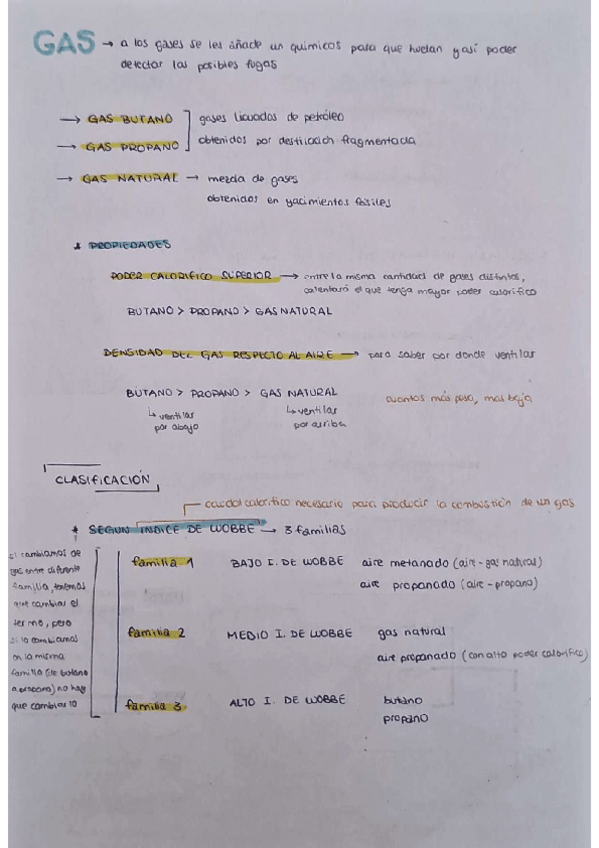 GAS → a los gases se les añade un quimicos para que huelan y así poder
detectar las posibles fugas
→ GAS BUTANO
→ GAS PROPANO
gases licuados de petróleo
obtenidos por destilación fragmentada
→ GAS NATURAL → mezcla de gases
obtenidos en yacimientos fósiles
* PROPIEDADES
PODER CALORIFICO SUPERIOR → entre la misma cantidad de gases distintos,
calentará el que tenga mayor poder calorifico
BUTANO > PROPANO > GAS NATURAL
DENSIDAD DEL GAS RESPECTO AL AIRE → para saber por donde ventilar
BUTANO > PROPANO > GAS NATURAL
cuantos más pesa, mas baja
↳ ventilar
por abajo
↳ ventilar
por arriba
CLASIFICACIÓN
caudal calorifico necesario para producir la combustión de un gas
* SEGUN INDICE DE WOBBE → 3 familias
si cambiamos de
gas entre diferente
familia, tenemos
que cambiar el
termo, pero
si lo cambiamos
en la misma
familia (de butano
a propano) no hay
que cambiarlo
familia 1 BAJO I. DE WOBBE aire metanado (aire-gas natural)
aire propanado (aire-propano)
familia 2 MEDIO I. DE WOBBE gas natural
aire propanado (con alto poder calorifico)
familia 3 ALTO I. DE WOBBE butano
propano